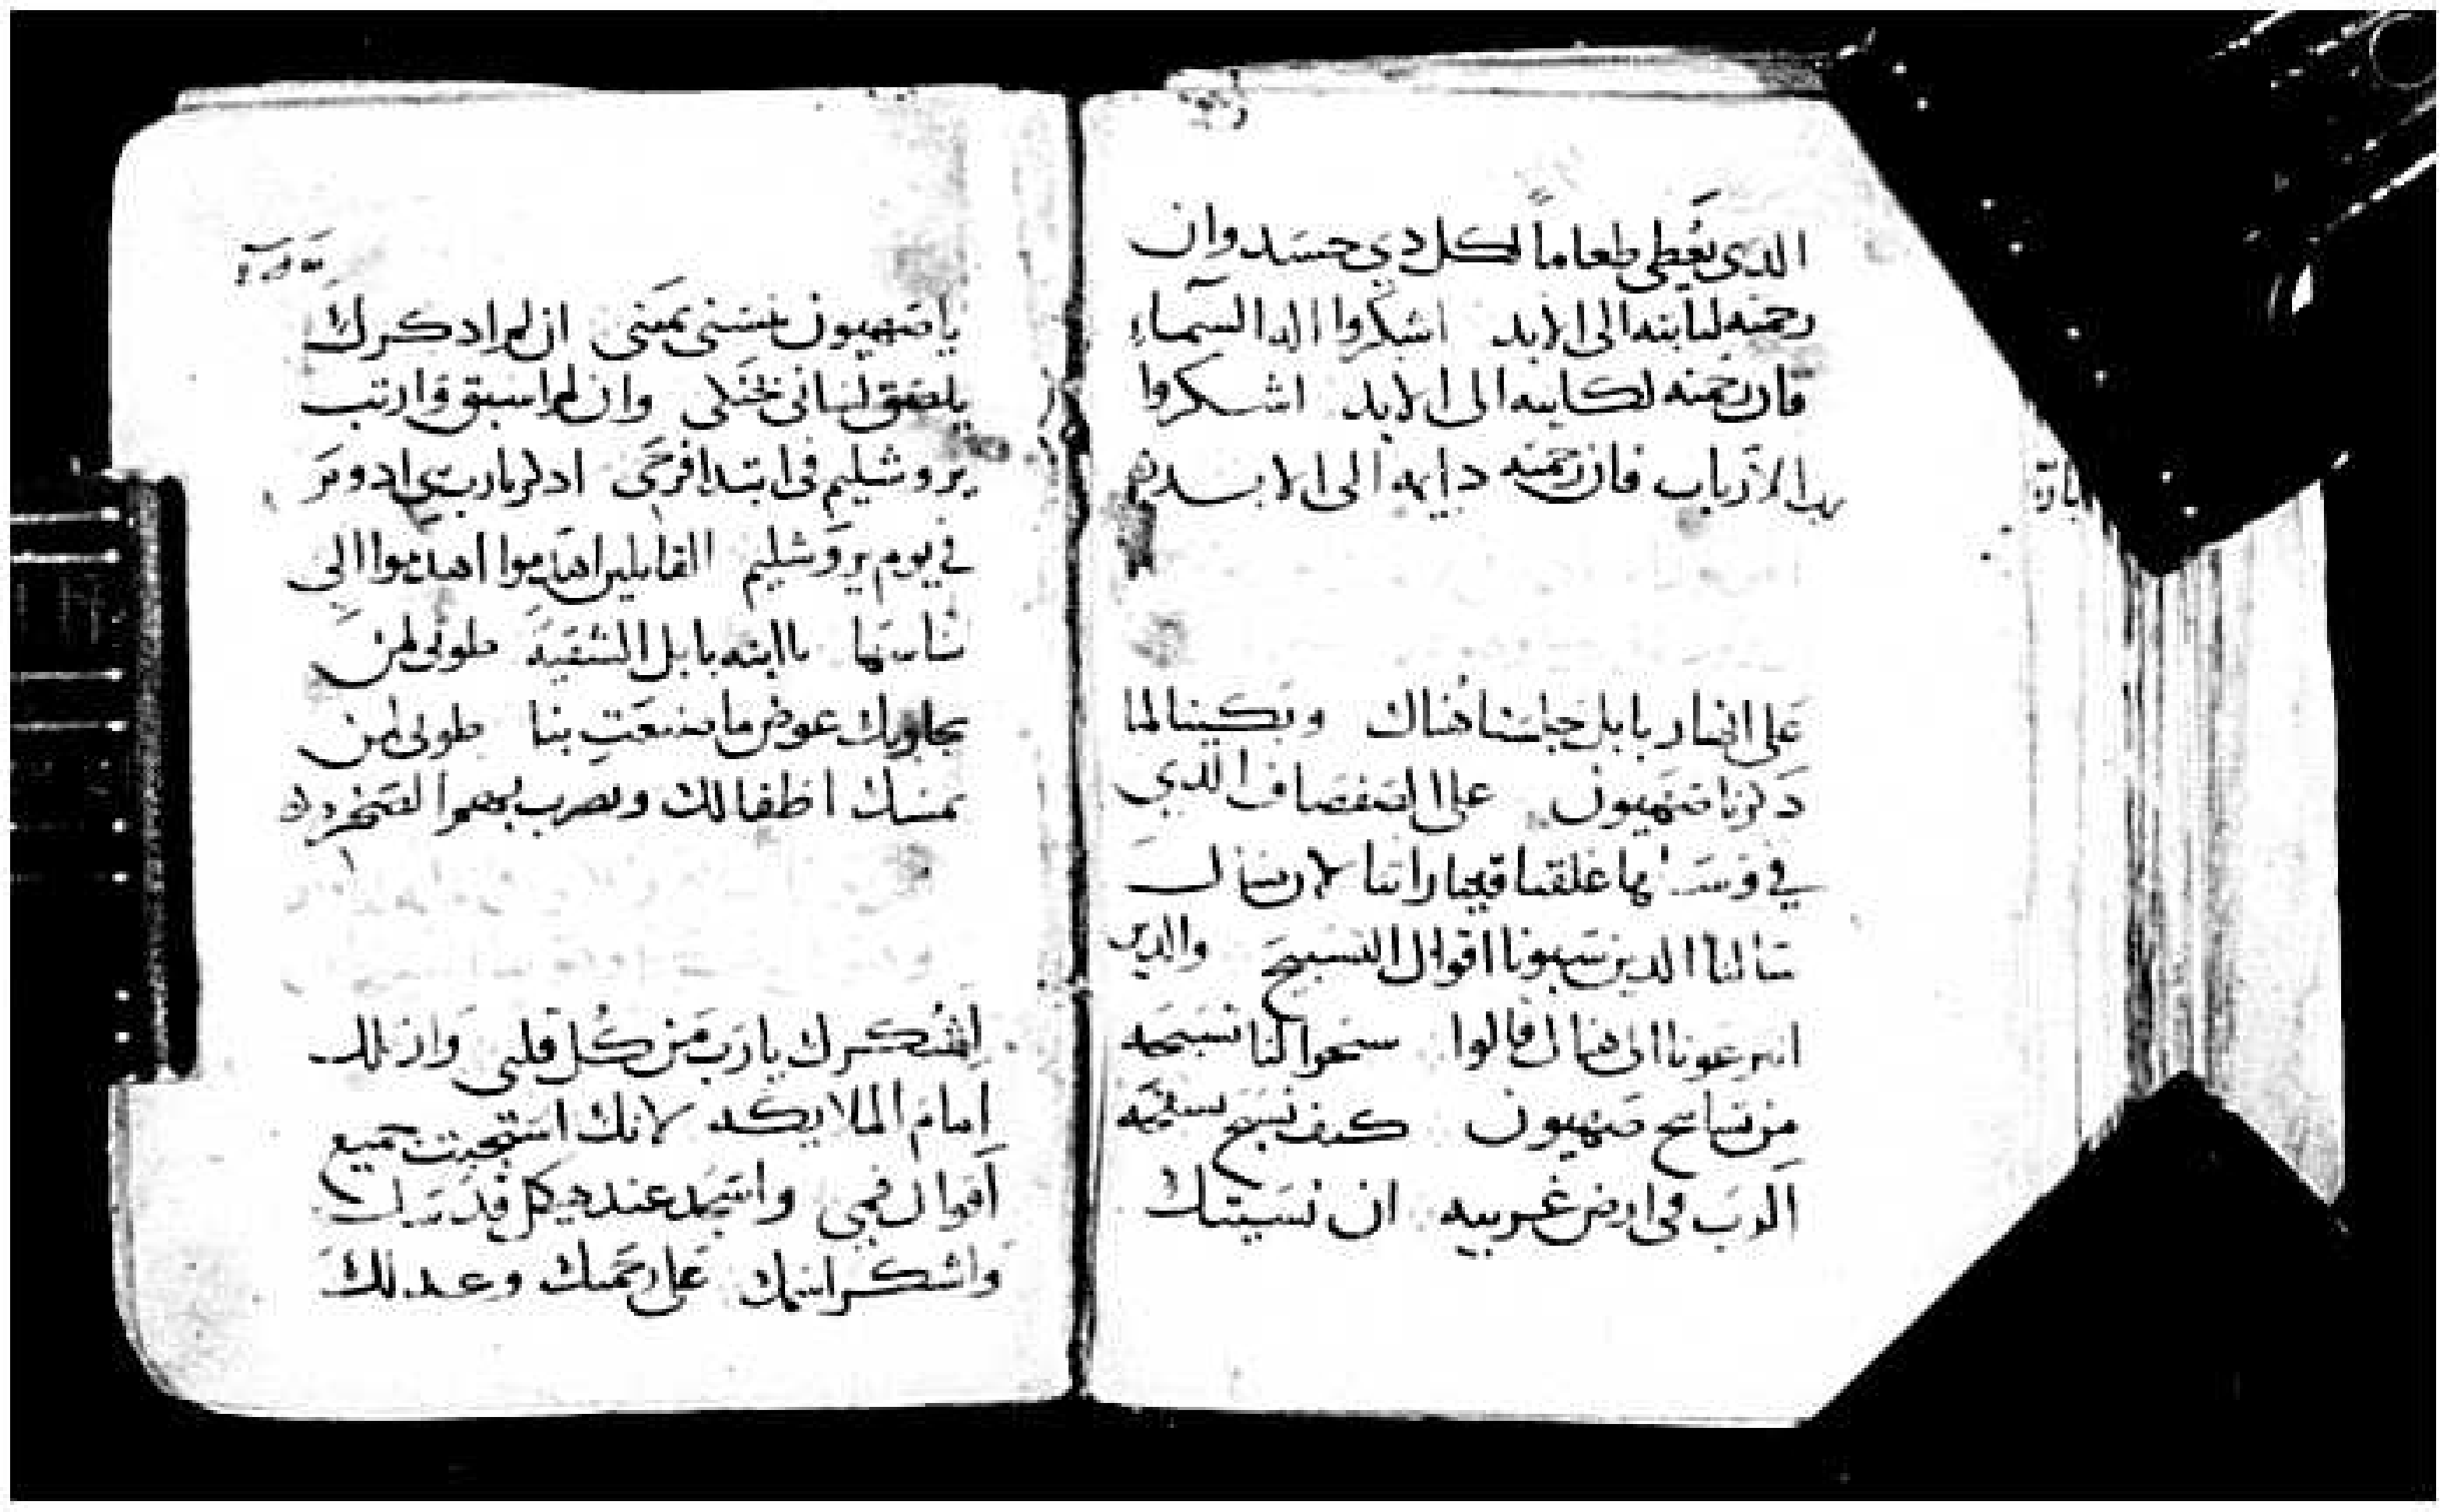 الدى يعطى طعاماً لكل دي جسد وان
رحمته ثابته الى الابد اشكروا اله السماء
فان رحمته لكاينه الى الابد اشكروا
رب الارباب فان رحمته دايمه الى الابد
على انهار بابل جلسنا هناك وبكينا لما
دكرنا صهيون على الصفصاف الدي
في وسطها علقنا قيتاراتنا لان هناك
سالنا الدين سبونا اقوال التسبيح والدين
انتزعونا الى هناك قالوا سبحوا لنا تسبحه
من تسابيح صهيون كيف نسبح تسبحه
الرب في ارض غريبه ان نسيتك
يا صهيون نسيتنى يمينى ان لم ادكرك
يلصق لسانى بحنكى وان لم اسبق وارتب
يروشليم فى ابتدا فرحى ادكر يارب بني ادوم
في يوم يروشليم القايلين اهدموا اهدموا الى
اساسها يا ابنه بابل الشقيه طوبى لمن
يجازيك عوض ما صنعت بنا طوبى لمن
يمسك اطفالك ويضرب بهم الصخره
اشكرك يارب من كل قلبى وارتل لك
امام الملايكه لانك استجبت جميع
اقوال فمي واسجد عند هيكل قدسك
واشكر اسمك على رحمتك وعدلك